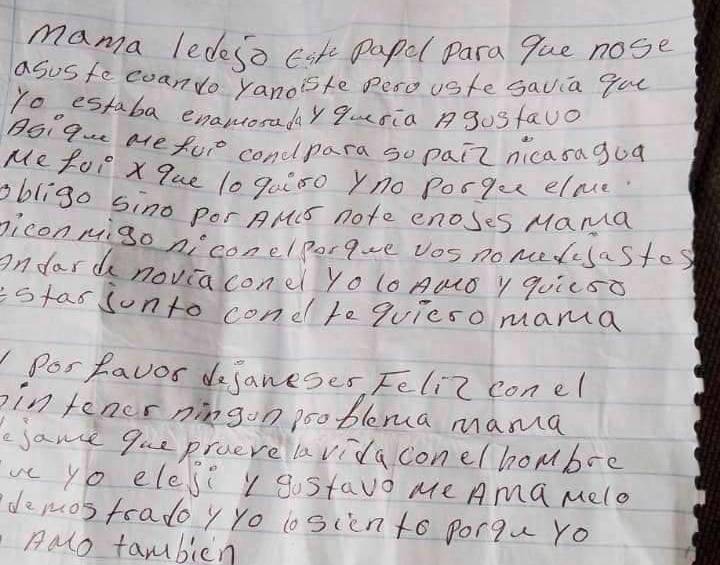 Mama ledejo este papel para que nose
asuste cuando yanoiste pero uste savia que
yo estaba enamorada y queria A gustavo
Asi que me fui conel para su paiz nicaragua
Me fui x que lo quiro y no porque elme
obligo sino por Amor note enojes Mama
niconmigo ni conel porque vos nomedejastes
andar de novia con el yo lo Amo y quiero
estar junto conel te quiero mama
y por favor dejameser Feliz con el
sin tener ningun problema mama
dejame que prueve la vida con el hombre
que yo eleji y gustavo me Ama melo
demostrado y yo lo siento porqu yo
lo Amo tambien